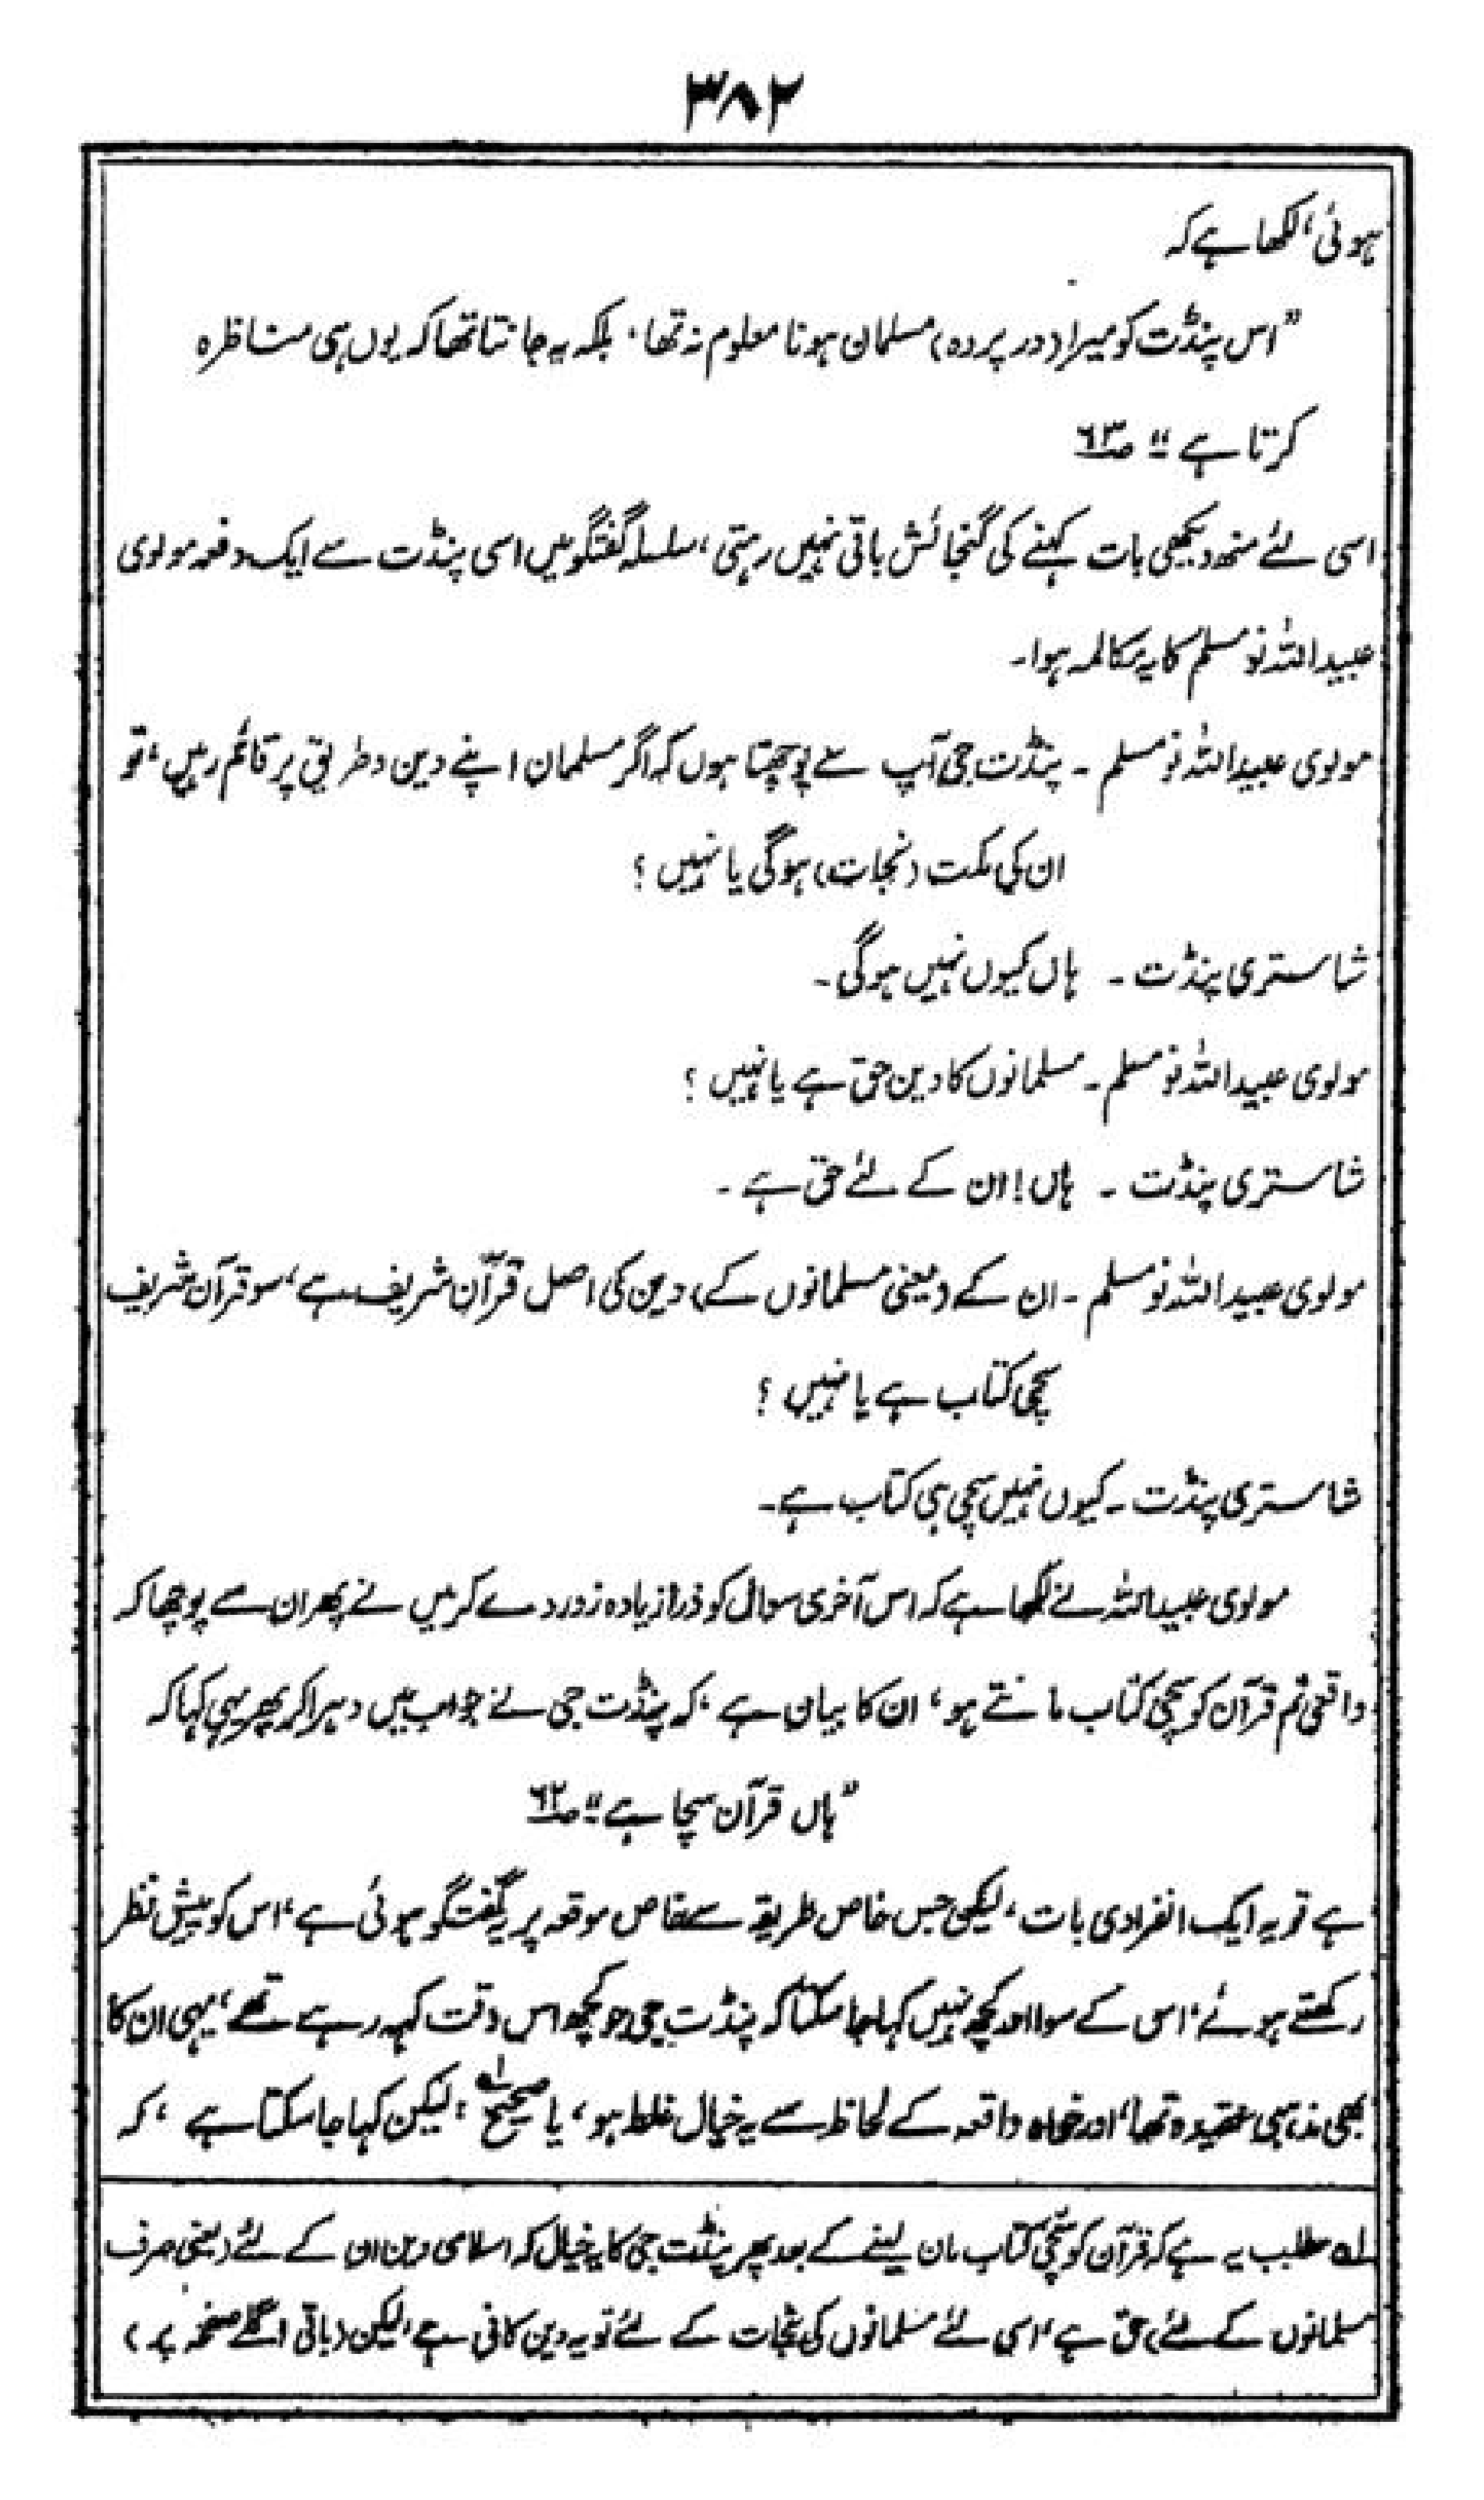 ۳۸۲
ہوئی، لکھا ہے کہ
”اس پنڈت کو میرا (در پردہ) مسلمان ہونا معلوم نہ تھا، بلکہ یہ جانتا تھا کہ یوں ہی مناظرہ
کرتا ہے“ ص۶۳
اسی لئے منھ دیکھی بات کہنے کی گنجائش باقی نہیں رہتی، سلسلہ گفتگو میں اسی پنڈت سے ایک دفعہ مولوی
عبیداللہ نومسلم کا یہ مکالمہ ہوا۔
مولوی عبیداللہ نومسلم ۔ پنڈت جی آپ سے پوچھتا ہوں کہ اگر مسلمان اپنے دین و طریق پر قائم رہیں، تو
ان کی مکت (نجات) ہوگی یا نہیں ؟
شاستری پنڈت ۔ ہاں کیوں نہیں ہوگی ۔
مولوی عبیداللہ نومسلم ۔ مسلمانوں کا دین حق ہے یا نہیں ؟
شاستری پنڈت ۔ ہاں! ان کے لئے حق ہے ۔
مولوی عبیداللہ نومسلم ۔ ان کے (یعنی مسلمانوں کے) دین کی اصل قرآن شریف ہے، سو قرآن شریف
سچی کتاب ہے یا نہیں ؟
شاستری پنڈت ۔ کیوں نہیں سچی ہی کتاب ہے ۔
مولوی عبیداللہ نے لکھا ہے کہ اس آخری سوال کو ذرا زیادہ زور دے کر میں نے پھر ان سے پوچھا کہ
واقعی تم قرآن کو سچی کتاب مانتے ہو، ان کا بیان ہے، کہ پنڈت جی نے جواب میں دہرا کر پھر یہی کہا کہ
”ہاں قرآن سچا ہے“ ص۶۲
ہے تو یہ ایک انفرادی بات، لیکن جس خاص طریقہ سے خاص موقعہ پر یہ گفتگو ہوئی ہے، اس کو پیش نظر
رکھتے ہوئے، اس کے سوا اور کچھ نہیں کہا جا سکتا کہ پنڈت جی جو کچھ اس وقت کہہ رہے تھے، یہی ان کا
بھی مذہبی عقیدہ تھا، اور خواہ واقعہ کے لحاظ سے یہ خیال غلط ہو، یا صحیح لہ، لیکن کہا جا سکتا ہے، کہ
لہ مطلب یہ ہے کہ قرآن کو سچی کتاب مان لینے کے بعد پھر پنڈت جی کا یہ خیال کہ اسلامی دین ان کے لئے (یعنی صرف
مسلمانوں کے لئے) حق ہے، اسی لئے مسلمانوں کی نجات کے لئے تو یہ دین کافی ہے، لیکن (باقی اگلے صفحہ پر)